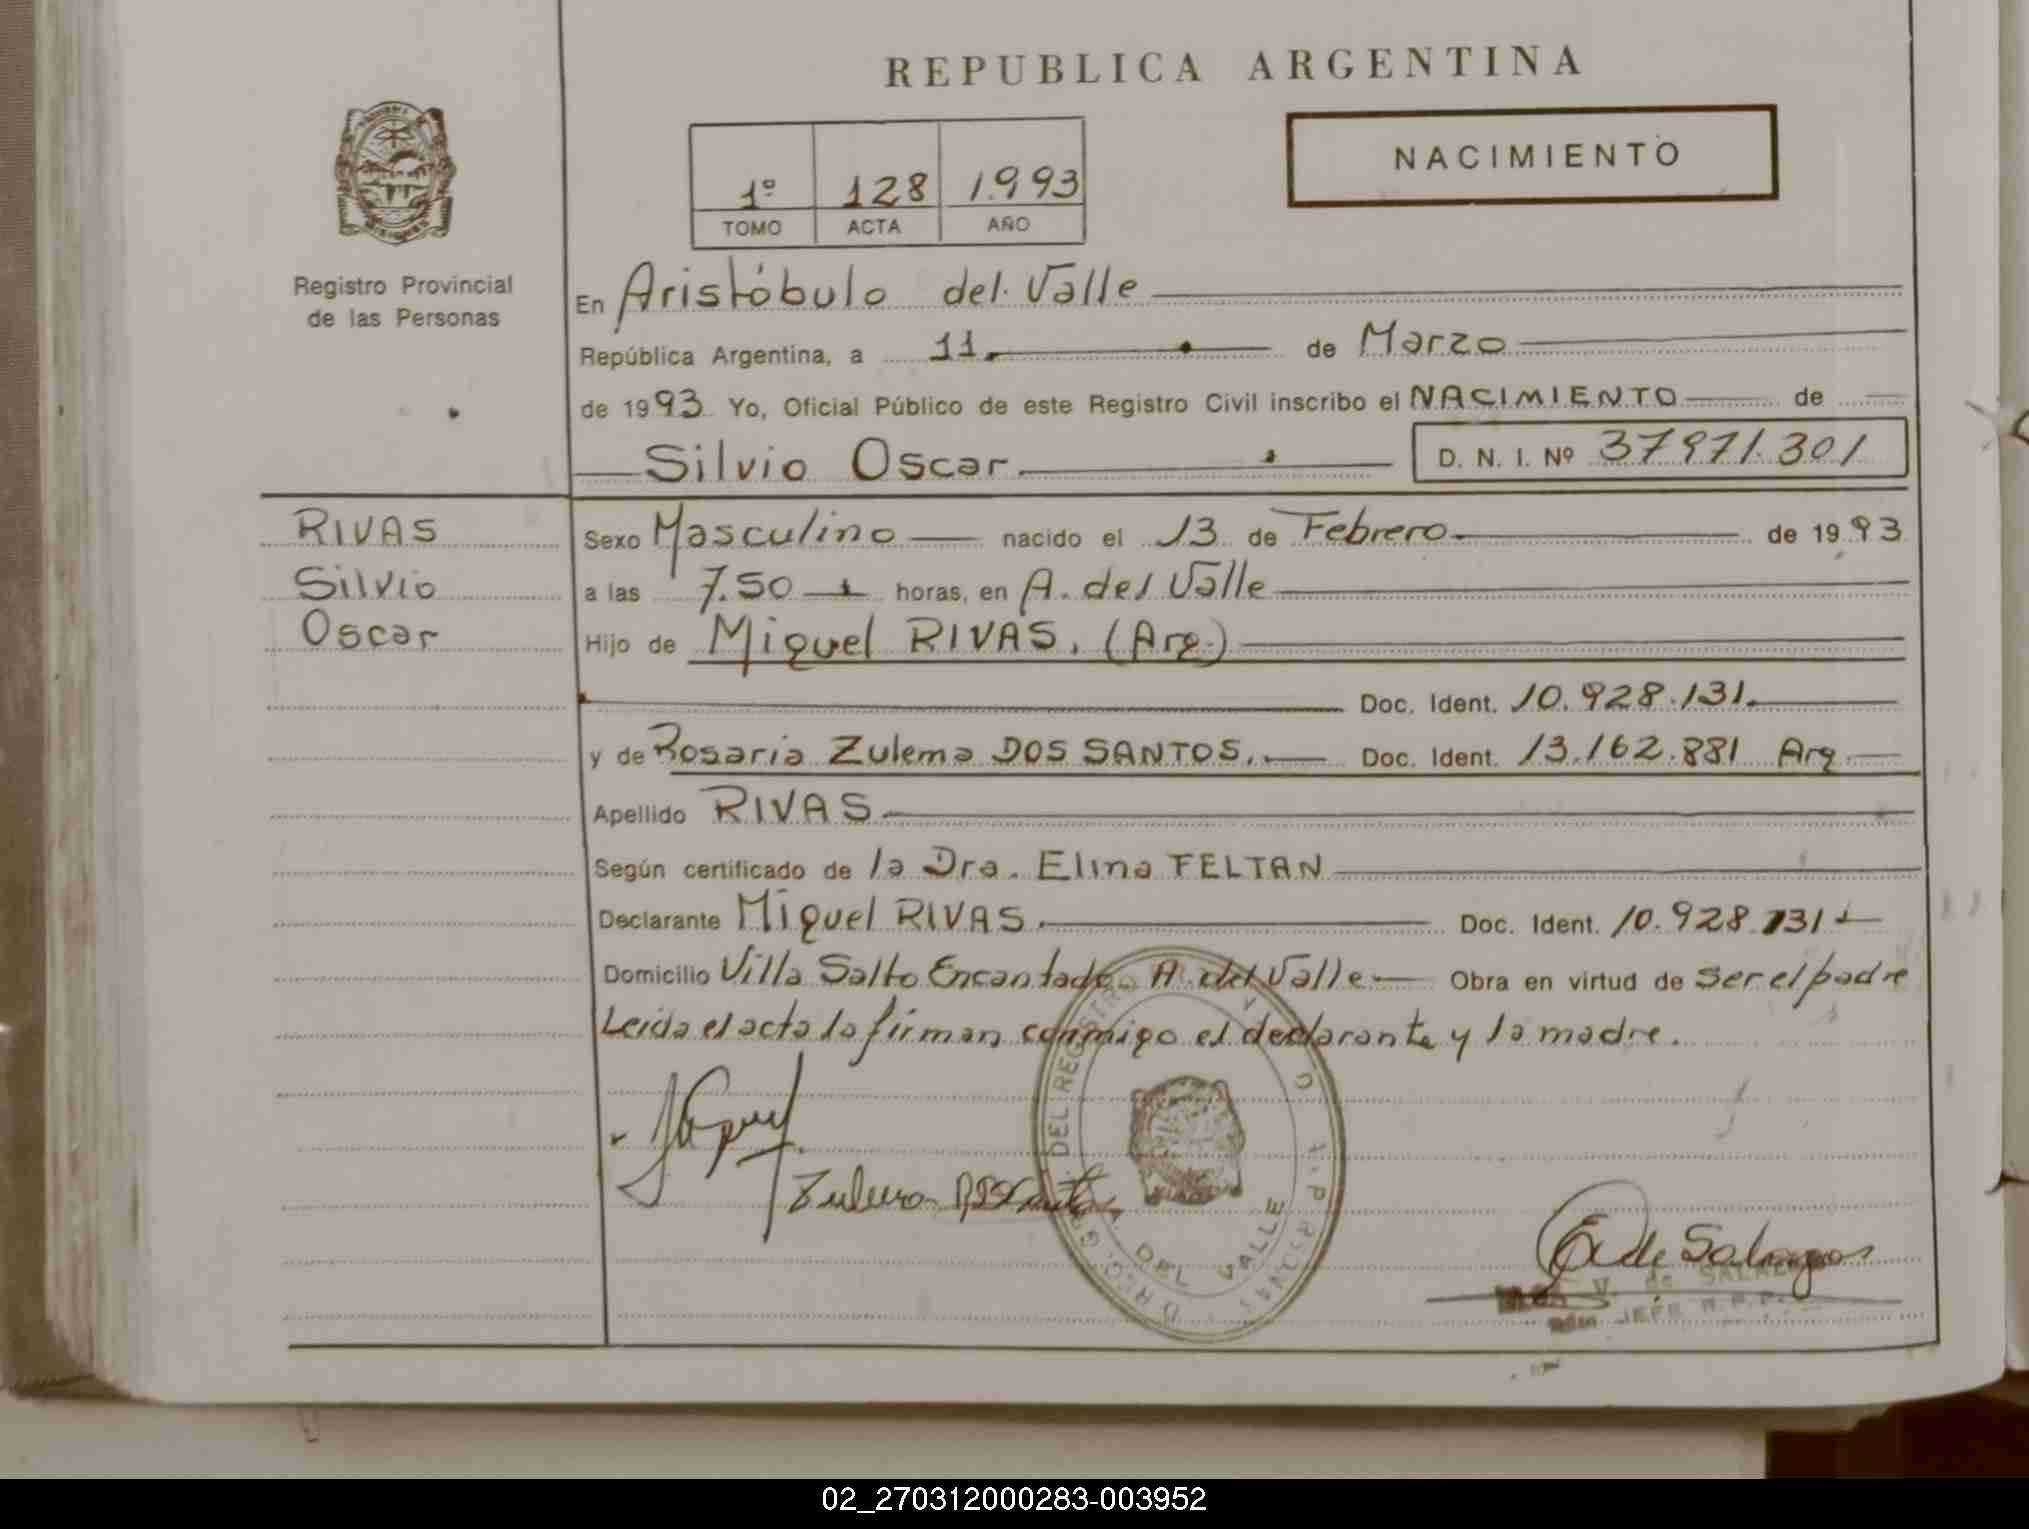 REPUBLICA ARGENTINA
NACIMIENTO
1º 128 1.993
TOMO ACTA AÑO
Registro Provincial
de las Personas
En Aristóbulo del Valle
República Argentina, a 11 de Marzo
de 1993 Yo, Oficial Público de este Registro Civil inscribo el NACIMIENTO de
Silvio Oscar D. N. I. Nº 37971.301
RIVAS
Silvio
Oscar
Sexo Masculino nacido el 13 de Febrero de 1993
a las 7.50 horas, en A. del Valle
Hijo de Miguel RIVAS. (Arg.)
Doc. Ident. 10.928.131.
y de Rosaria Zulema DOS SANTOS. Doc. Ident. 13.162.881 Arg.
Apellido RIVAS
Según certificado de la Dra. Elina FELTAN
Declarante Miguel RIVAS. Doc. Ident. 10.928.131
Domicilio Villa Salto Encantado. A. del Valle Obra en virtud de ser el padre
Leída el acta la firman conmigo el declarante y la madre.
DEL REGISTRO
DEL VALLE
Zulema
de Salagos
V. de
JEFE R.P.P.
02_270312000283-003952